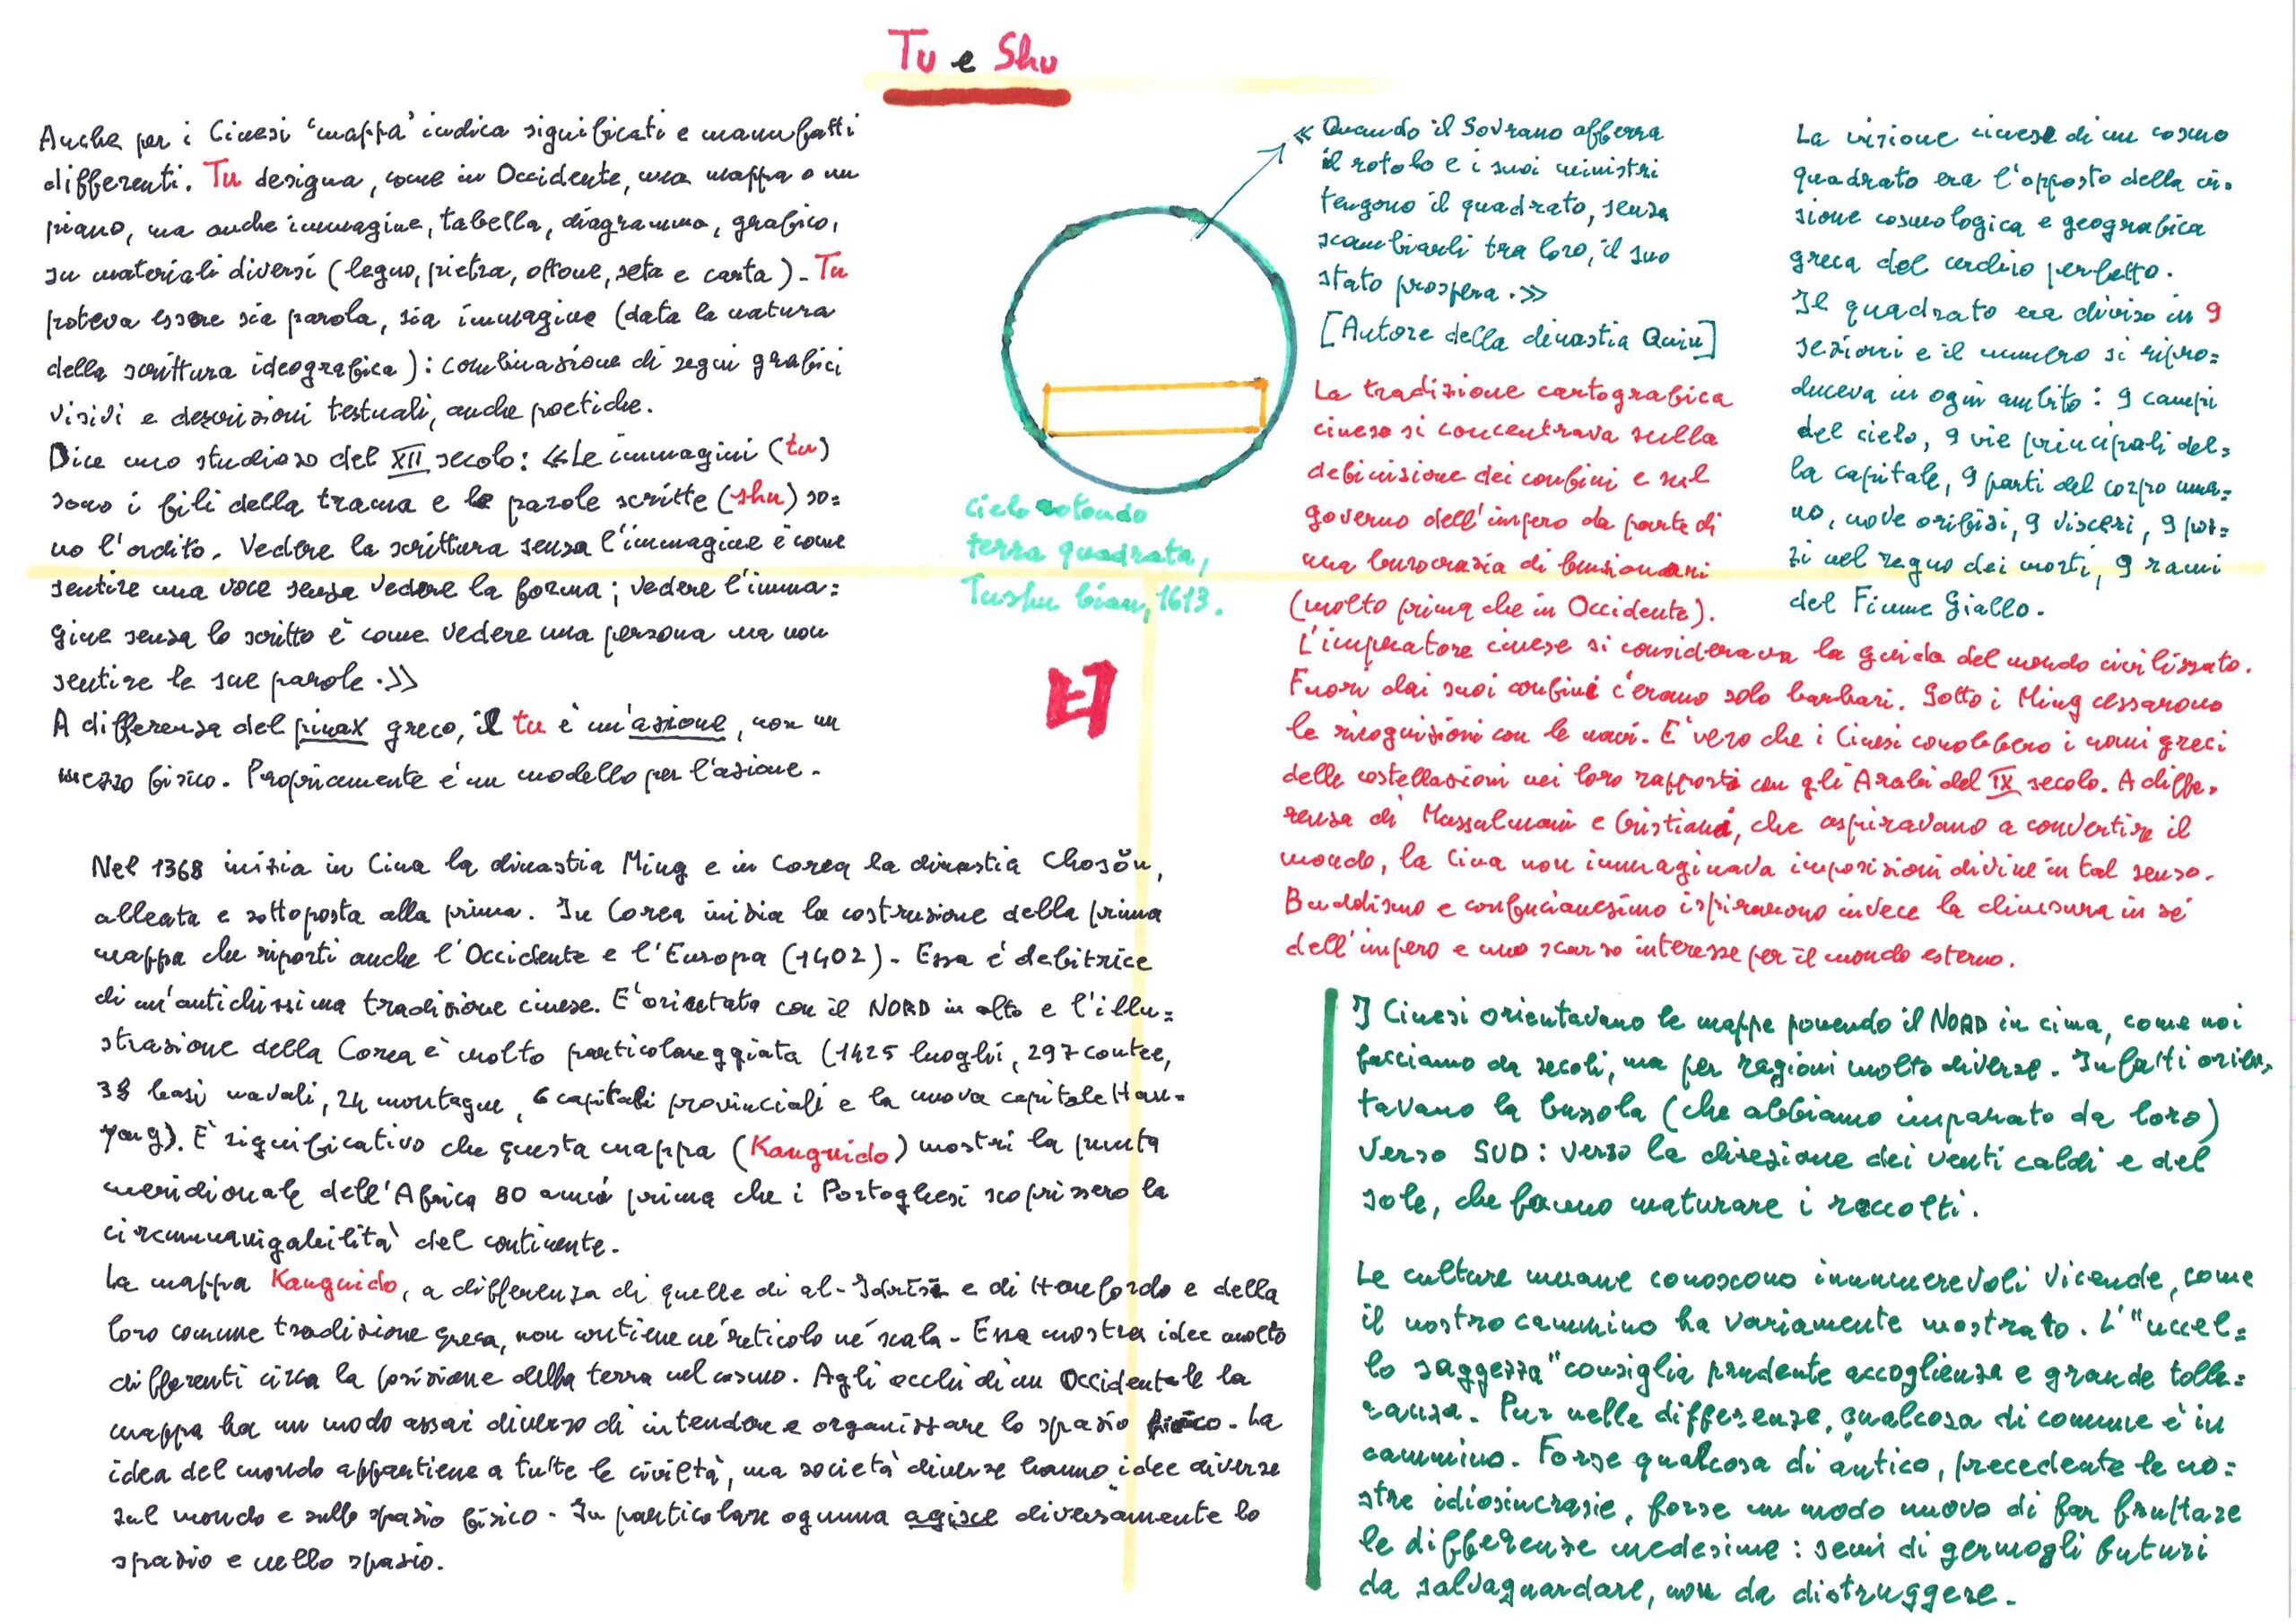 Tu e Shu
Anche per i Cinesi "mappa" indica significati e manufatti
differenti. Tu designa, come in Occidente, una mappa o un
piano, ma anche immagine, tabella, diagramma, grafico,
su materiali diversi (legno, pietra, ottone, seta e carta). Tu
poteva essere sia parola, sia immagine (data la natura
della scrittura ideografica): combinazione di segni grafici
visivi e descrizioni testuali, anche poetiche.
Dice uno studioso del XII secolo: «Le immagini (tu)
sono i fili della trama e le parole scritte (shu) so=
no l'ordito. Vedere la scrittura senza l'immagine è come
sentire una voce senza vedere la forma; vedere l'imma=
gine senza lo scritto è come vedere una persona ma non
sentire le sue parole.»
A differenza del pinax greco, il tu è un'azione, non un
mezzo fisico. Propriamente è un modello per l'azione.
Nel 1368 inizia in Cina la dinastia Ming e in Corea la dinastia Chosŏn,
alleata e sottoposta alla prima. In Corea inizia la costruzione della prima
mappa che riporti anche l'Occidente e l'Europa (1402). Essa è debitrice
di un'antichissima tradizione cinese. E' orientata con il NORD in alto e l'illu=
strazione della Corea è molto particolareggiata (1425 luoghi, 297 contee,
38 basi navali, 24 montagne, 6 capitali provinciali e la nuova capitale Han=
yang). E' significativo che questa mappa (Kangnido) mostri la punta
meridionale dell'Africa 80 anni prima che i Portoghesi scoprissero la
circumnavigabilità del continente.
La mappa Kangnido, a differenza di quelle di al-Idrisi e di Hereford e della
loro comune tradizione greca, non contiene né reticolo né scala. Essa mostra idee molto
differenti circa la posizione della terra nel cosmo. Agli occhi di un Occidentale la
mappa ha un modo assai diverso di intendere e organizzare lo spazio fisico. La
idea del mondo appartiene a tutte le civiltà, ma società diverse hanno idee diverse
sul mondo e sullo spazio fisico. In particolare ognuna agisce diversamente lo
spazio e nello spazio.
cielo rotondo
terra quadrata,
Tushu bian, 1613.
日
«Quando il Sovrano afferra
il rotolo e i suoi ministri
tengono il quadrato, senza
scambiarli tra loro, il suo
stato prospera.»
[Autore della dinastia Quin]
La tradizione cartografica
cinese si concentrava sulla
definizione dei confini e sul
governo dell'impero da parte di
una burocrazia di funzionari
(molto prima che in Occidente).
L'imperatore cinese si considerava la guida del mondo civilizzato.
Fuori dai suoi confini c'erano solo barbari. Sotto i Ming cessarono
le ricognizioni con le navi. E' vero che i Cinesi conobbero i nomi greci
delle costellazioni nei loro rapporti con gli Arabi del IX secolo. A diffe=
renza di Mussulmani e Cristiani, che aspiravano a convertire il
mondo, la Cina non immaginava imposizioni divine in tal senso.
Buddismo e confucianesimo ispirarono invece la chiusura in sé
dell'impero e uno scarso interesse per il mondo esterno.
La visione cinese di un cosmo
quadrato era l'opposto della vi=
sione cosmologica e geografica
greca del cerchio perfetto.
Il quadrato era diviso in 9
sezioni e il numero si ripro=
duceva in ogni ambito: 9 campi
del cielo, 9 vie principali del=
la capitale, 9 parti del corpo uma=
no, nove orifizi, 9 visceri, 9 poz=
zi nel regno dei morti, 9 rami
del Fiume Giallo.
I Cinesi orientavano le mappe ponendo il NORD in cima, come noi
facciamo da secoli, ma per ragioni molto diverse. Infatti orien=
tavano la bussola (che abbiamo imparato da loro)
verso SUD: verso la direzione dei venti caldi e del
sole, che fanno maturare i raccolti.
Le culture umane conoscono innumerevoli vicende, come
il nostro cammino ha variamente mostrato. L'"uccel=
lo saggezza" consiglia prudente accoglienza e grande tolle=
ranza. Pur nelle differenze, qualcosa di comune è in
cammino. Forse qualcosa di antico, precedente le no=
stre idiosincrasie, forse un modo nuovo di far fruttare
le differenze medesime: semi di germogli futuri
da salvaguardare, non da distruggere.